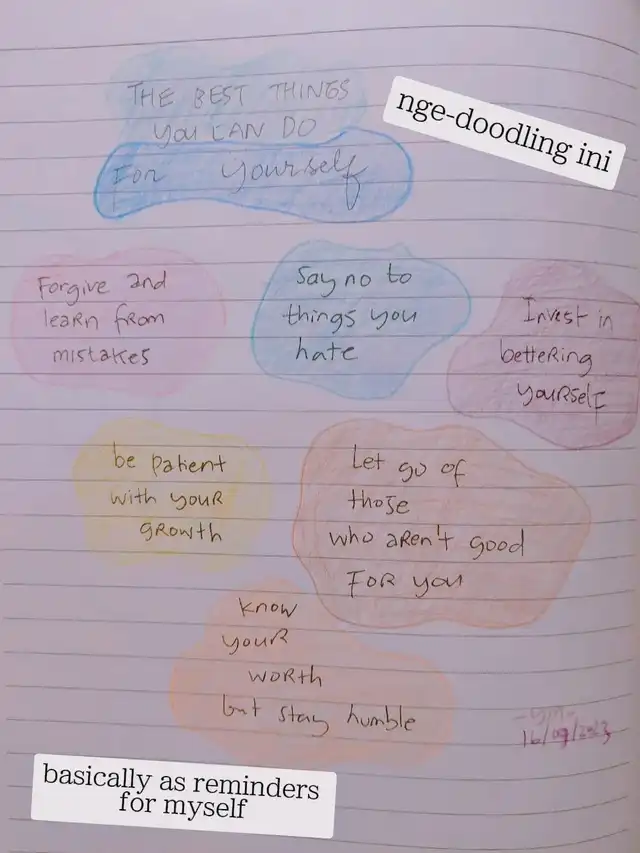 THE BEST THINGS
YOU CAN DO
For yourself
nge-doodling ini
Forgive and
learn from
mistakes
Say no to
things you
hate
Invest in
bettering
yourself
be patient
with your
growth
Let go of
those
who aren't good
FOR you
know
your
worth
but stay humble
basically as reminders
for myself